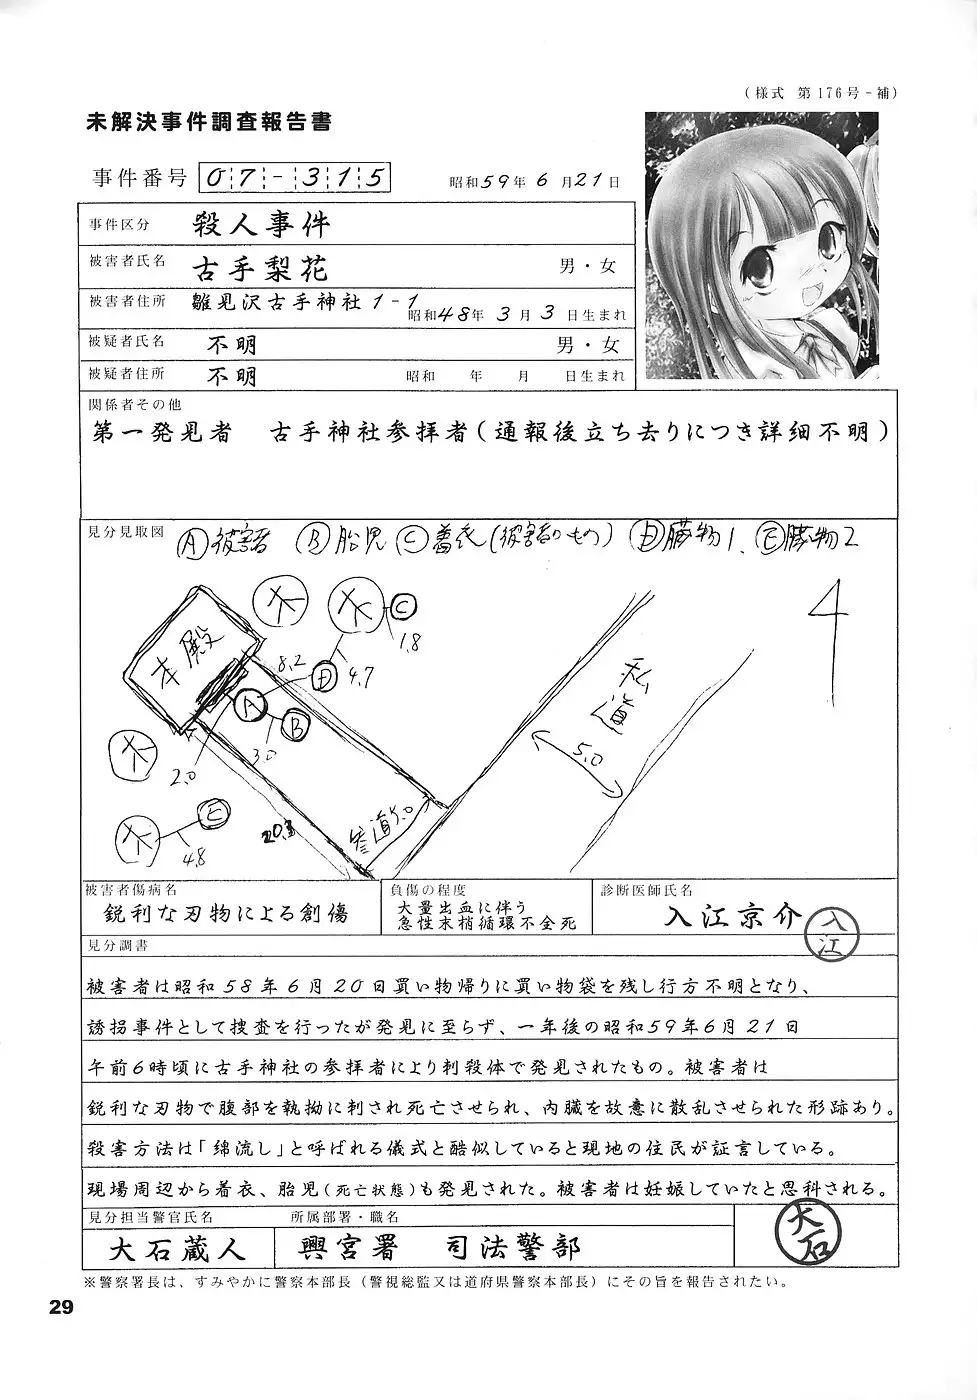 (様式 第176号-補)
未解決事件調査報告書
事件番号 07-315 昭和59年6月21日
事件区分 殺人事件
被害者氏名 古手梨花 男・女
被害者住所 雛見沢古手神社1-1 昭和48年3月3日生まれ
被疑者氏名 不明 男・女
被疑者住所 不明 昭和 年 月 日生まれ
関係者その他
第一発見者 古手神社参拝者(通報後立ち去りにつき詳細不明)
見分見取図 Ⓐ被害者 Ⓑ胎児 Ⓒ着衣(被害者のもの) Ⓓ臓物1、Ⓔ臓物2
木
木
C
1.8
本殿
8.2
D
4.7
A
B
3.0
2.0
木
E
木
4.8
20.3
参道5.0
私道
5.0
4
被害者傷病名
鋭利な刃物による創傷
負傷の程度
大量出血に伴う
急性末梢循環不全死
診断医師氏名
入江京介
入江
見分調書
被害者は昭和58年6月20日買い物帰りに買い物袋を残し行方不明となり、
誘拐事件として捜査を行ったが発見に至らず、一年後の昭和59年6月21日
午前6時頃に古手神社の参拝者により刺殺体で発見されたもの。被害者は
鋭利な刃物で腹部を執拗に刺され死亡させられ、内臓を故意に散乱させられた形跡あり。
殺害方法は「綿流し」と呼ばれる儀式と酷似していると現地の住民が証言している。
現場周辺から着衣、胎児(死亡状態)も発見された。被害者は妊娠していたと思科される。
見分担当警官氏名
大石蔵人
所属部署・職名
興宮署 司法警部
大石
※警察署長は、すみやかに警察本部長(警視総監又は道府県警察本部長)にその旨を報告されたい。
29